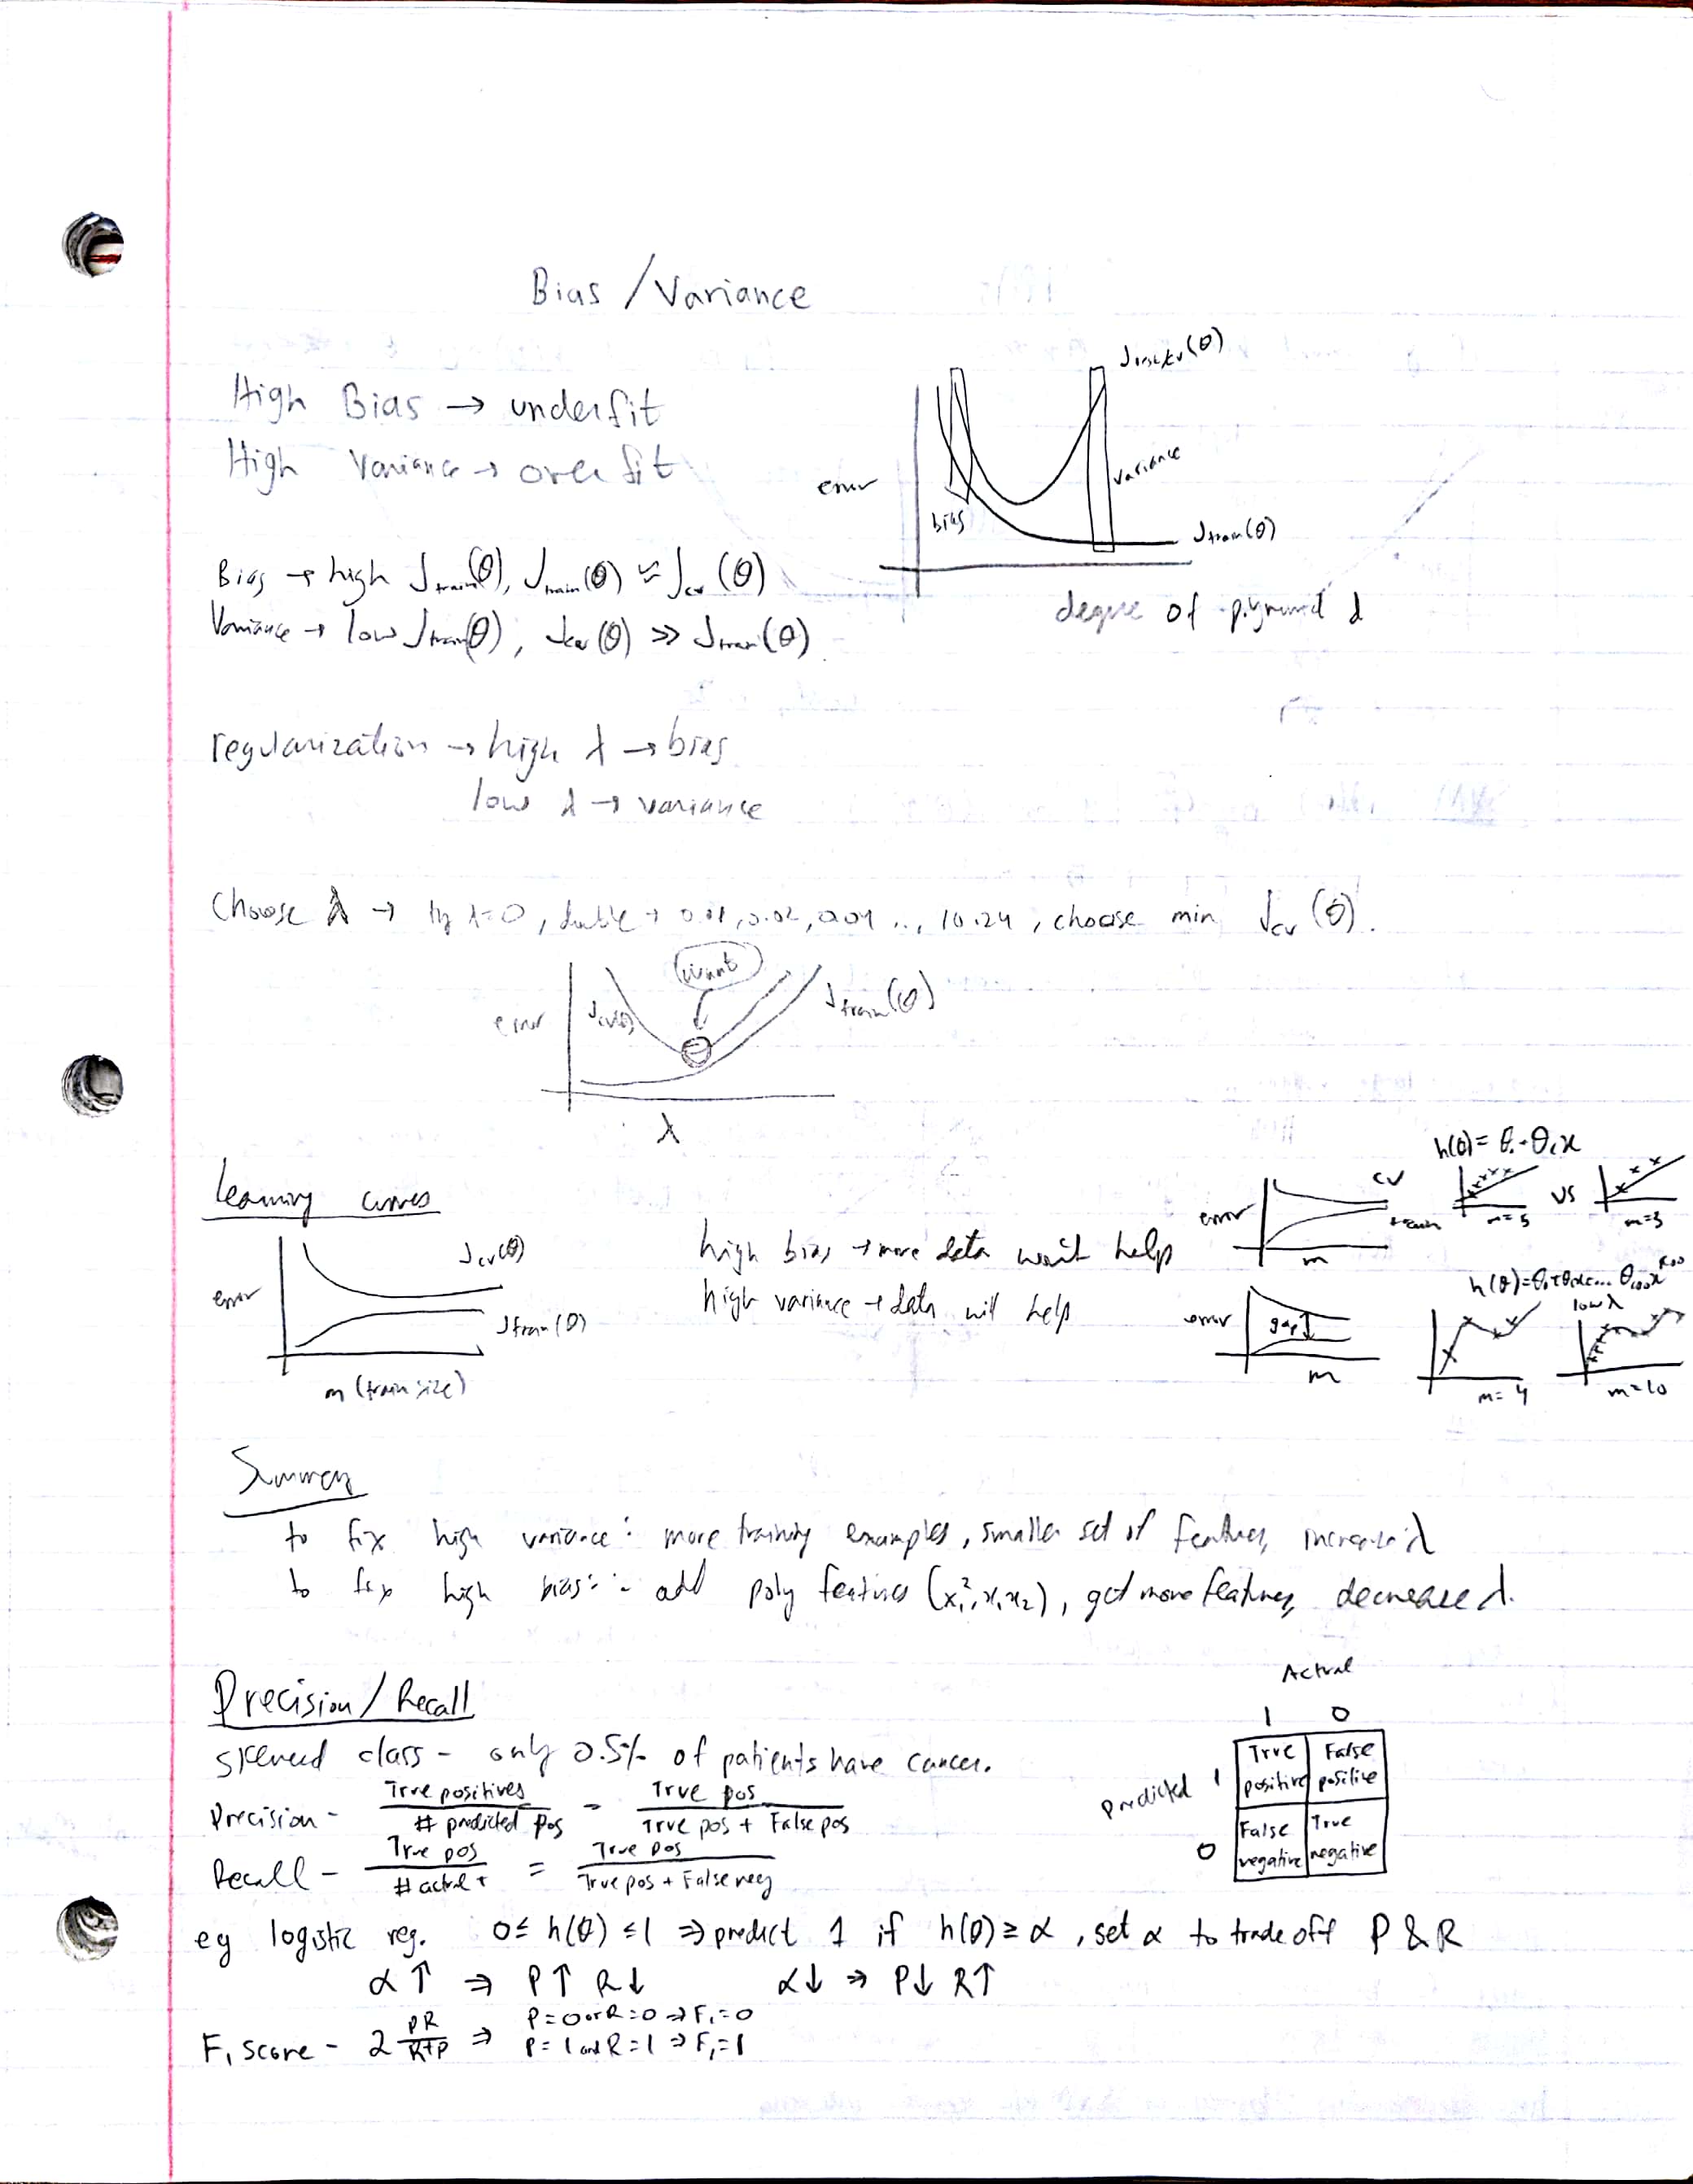 Bias / Variance
High Bias → underfit
High Variance → overfit
error
bias
variance
J train(θ)
degree of d
Bias → high J train(θ), J train(θ) ≈ J cv (θ)
Variance → low J train(θ), J cv (θ) >> J train(θ)
regularization → high λ → bias
low λ → variance
Choose λ → try λ=0, double → 0.01, 0.02, 0.04 ..., 10.24, choose min J cv (θ).
want
error
J cv(θ)
J train(θ)
λ
Learning curves
error
J cv(θ)
J train(θ)
m (train size)
high bias → more data won't help
high variance → data will help
error
cv
train
m
m=5
vs
m=3
error
gap
m
low λ
m=4
m=10
Summary
to fix high variance: more training examples, smaller set of features, increase λ
to fix high bias: add poly features (x₁², x₁x₂), get more features, decrease λ.
Precision / Recall
skewed class - only 0.5% of patients have cancer.
Precision - True positives / # predicted pos = True pos / True pos + False pos
Recall - True pos / # actual + = True pos / True pos + False neg
Actual
1 0
predicted 1
True positive
False positive
0
False negative
True negative
eg logistic reg. 0 ≤ h(θ) ≤ 1 ⇒ predict 1 if h(θ) ≥ α, set α to trade off P & R
α↑ ⇒ P↑ R↓ α↓ ⇒ P↓ R↑
F₁ score - 2 PR / R+P ⇒ P=0 or R=0 ⇒ F₁=0
P=1 and R=1 ⇒ F₁=1